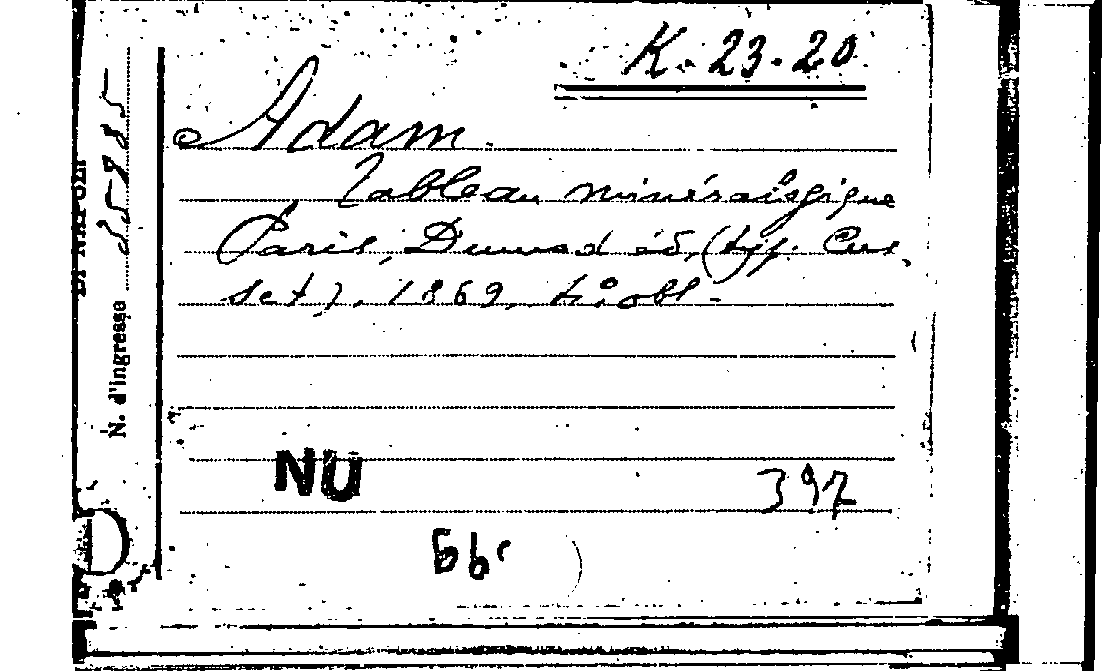 K. 23. 20
Adam.
Tableau minéralogique
Paris, Dunod éd, (typ. Cus
set), 1869, 4.° obl.
NU
397
DI NAPOLI
N. d'ingresso